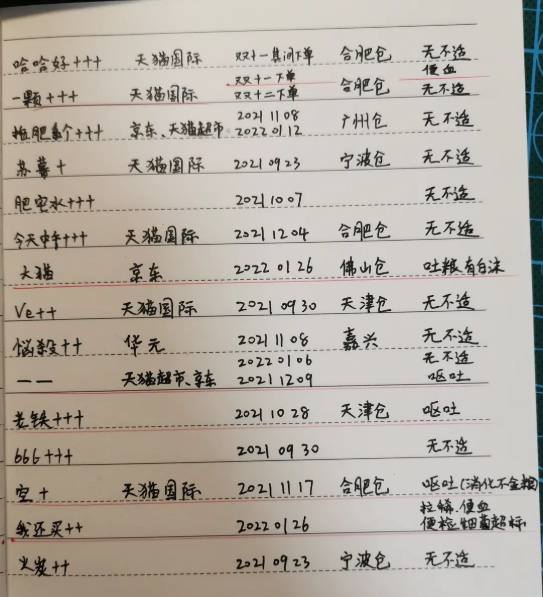 哈哈好+++ 天猫国际 双十一集门下单 合肥仓 无不适
一颗+++ 天猫国际 双十一下单 合肥仓 便血
双十二下单 无不适
拖肥多个+++ 京东、天猫超市 2021 11 08 广州仓 无不适
2022 01 12
苏暮+ 天猫国际 2021 09 23 宁波仓 无不适
肥宅水+++ 2021 10 07 无不适
今天中午+++ 天猫国际 2021 12 04 合肥仓 无不适
大猫 京东 2022 01 26 佛山仓 吐粮,有白沫
Ve++ 天猫国际 2021 09 30 天津仓 无不适
恼殺++ 华元 2021 11 08 嘉兴 无不适
2022 01 06 无不适
一一 天猫超市、京东 2021 12 09 呕吐
老铁+++ 2021 10 28 天津仓 呕吐
666+++ 2021 09 30 无不适
空+ 天猫国际 2021 11 17 合肥仓 呕吐(消化不全粮)
我还买++ 2022 01 26 拉稀、便血
便检细菌超标
火炭++ 2021 09 23 宁波仓 无不适